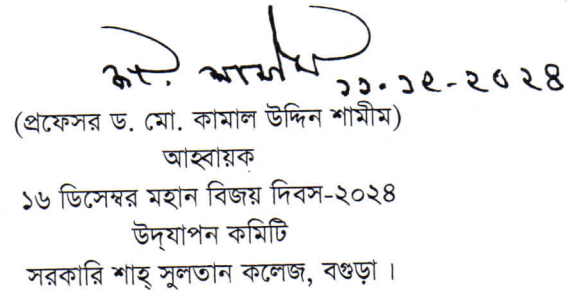 ড. শামীম ১১.১২-২০২৪
(প্রফেসর ড. মো. কামাল উদ্দিন শামীম)
আহ্বায়ক
১৬ ডিসেম্বর মহান বিজয় দিবস-২০২৪
উদ্‌যাপন কমিটি
সরকারি শাহ্ সুলতান কলেজ, বগুড়া ।